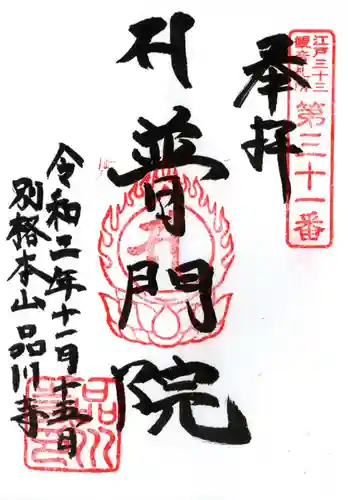 江戸三十三
観音札所
第三十一番
奉拝
普門院
令和二年十一月十五日
別格本山 品川寺